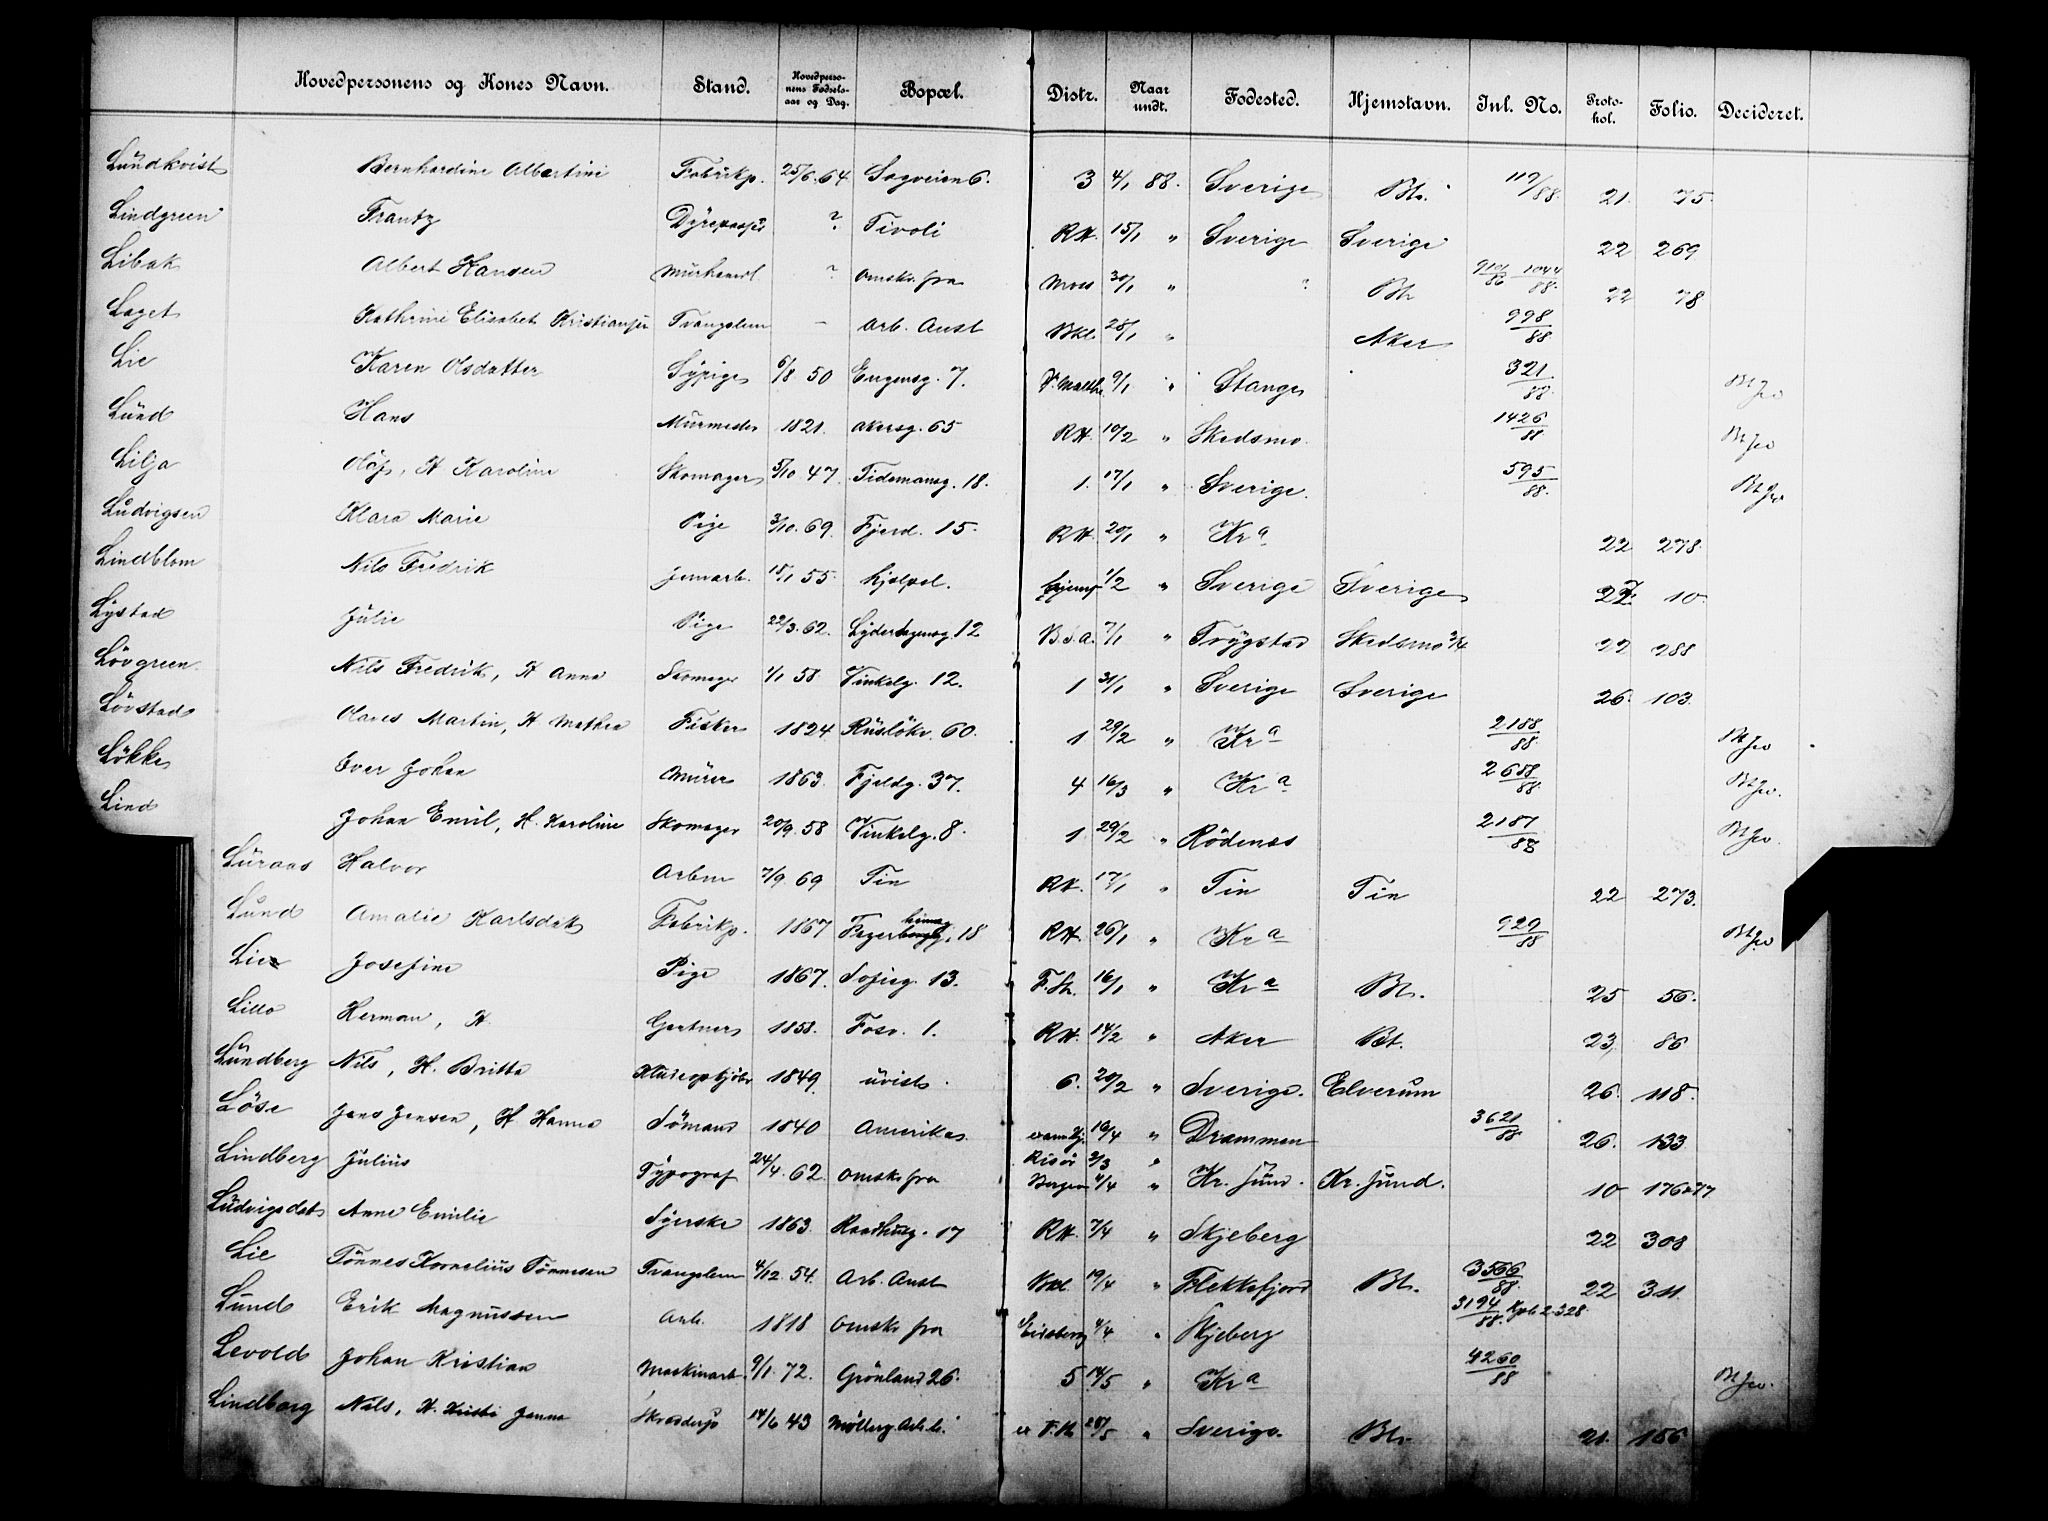 Hovedpersonens og Kones Navn. Stand. Hovedpersonens Fødselsaar og Dag. Bopæl. Distr. Naar undt. Fødested. Hjemstavn. Inl. No. Protokol. Folio. Decideret.
Lundkvist Bernhardine Albertine Fabrikp. 25/6. 64 Sagveien 6. 3 4/1 88. Sverige Bt. 117/88. 21. 75.
Lindgreen Frantz ? Tivoli RH. 15/1 " Sverige Sverige 22 269
Libak Albert Hansen Murhaandl ? omskr. fra Moss 30/1 " ? Bt 910/86 1044/88. 22 78
Laget Kathrine Elisabet Kristiansen Tvangslem - Arb. Anst Bkl. 28/1 " Aker 998/88.
Lie Karen Olsdatter Sypige 6/8 50 Eugensg. 7. 9/1 " Stange 321/88. Bt Jw
Lund Hans Murmester 1821. Akersg. 65 RH. 10/2 " Skedsmo. 1426/88. Bt Jw
Lilja Olof, H Karoline Skomager 5/10 47 Tidemansg. 18. 1. 17/1 " Sverige. 595/88. Bt Jw
Ludvigsen Klara Marie Pige 3/10. 69. Fjerd. 15. RH. 20/1 " Kra 22 278.
Lindblom Nils Fredrik Jernarb. 18/1 55. hjelpel. 1/2 " Sverige Sverige 27. 10.
Lystad Julie Pige 22/3. 62. Lyder Sagensg 12 B.S.A. 7/1 " Trygstad Skedsmo 3/4 22 288
Løvgreen. Nils Fredrik, H Anna Skomager 1/1 58 Vinkelg. 12. 1 31/1 " Sverige Sverige 26. 103.
Løvstad Olaves Martin, H Mathea Fisker 1824 Rusløkv. 60. 1 29/2 " Kra 2188/88. Bt Jw
Løkke Iver Johan Murer 1863. Fjeldg. 37. 4 16/3 " Kra 2658/88. Bt Jw.
Lind Johan Emil, H. Karoline Skomager 20/9. 58 Vinkelg. 8. 1 29/2 " Rødenes 2187/88 Bt Jw.
Luraas Halvor Arbm 7/9. 69 Tin RH. 17/1 " Tin Tin 22 273.
Lund Amalie Karlsdat Fabrikp. 1867 Fagerheimsg. 18 RH. 26/1 " Kra 929/88 Bt Jw
Lie Josefine Pige 1867. Sofieg. 13. F.St. 16/1 " Kra Bt. 25 56.
Lillo Herman, H. Gartner 1858. Fosv. 1. RH. 14/2 " Aker Bt. 23, 86
Lundberg Nils, H. Britta Kludeopkjøbr 1849. uvist. 6. 20/2 " Sverige. Elverum 26. 118.
Løse Jens Jensen, H Hanna Sømand 1840 Amerika. 19/4 " Drammen 3621/88 26. 133
Lindberg Julius Typograf 24/4. 62. omskr fra Risør 3/3 " Bergen 4/4 " Kr. Sund. Kr. Sund. 10 176&77
Ludvigsdat Anne Emilie Syerske 1863. Raadhusg. 17 RH. 7/4 " Skjeberg 22 308
Lie Tønnes Kornelius Tønnesen Tvangslem 4/12. 54. Arb. Anst Bkl. 19/4 " Flekkefjord Bt. 3566/88. 22 311.
Lund Erik Magnussen Arb. 1818 omskr fra Eidsberg 4/4 " Skjeberg 3194/88. Kpb. 2-328
Levold Johan Kristian Maskinarb. 9/1. 72. Grønland 26. 5 14/5 " Kra 4260/88 Bt Jw.
Lindborg Nils, H. Janna 14/6 43 Møllerg. Arb. b. 28/5 " Sverige. Bt. 21. 166.